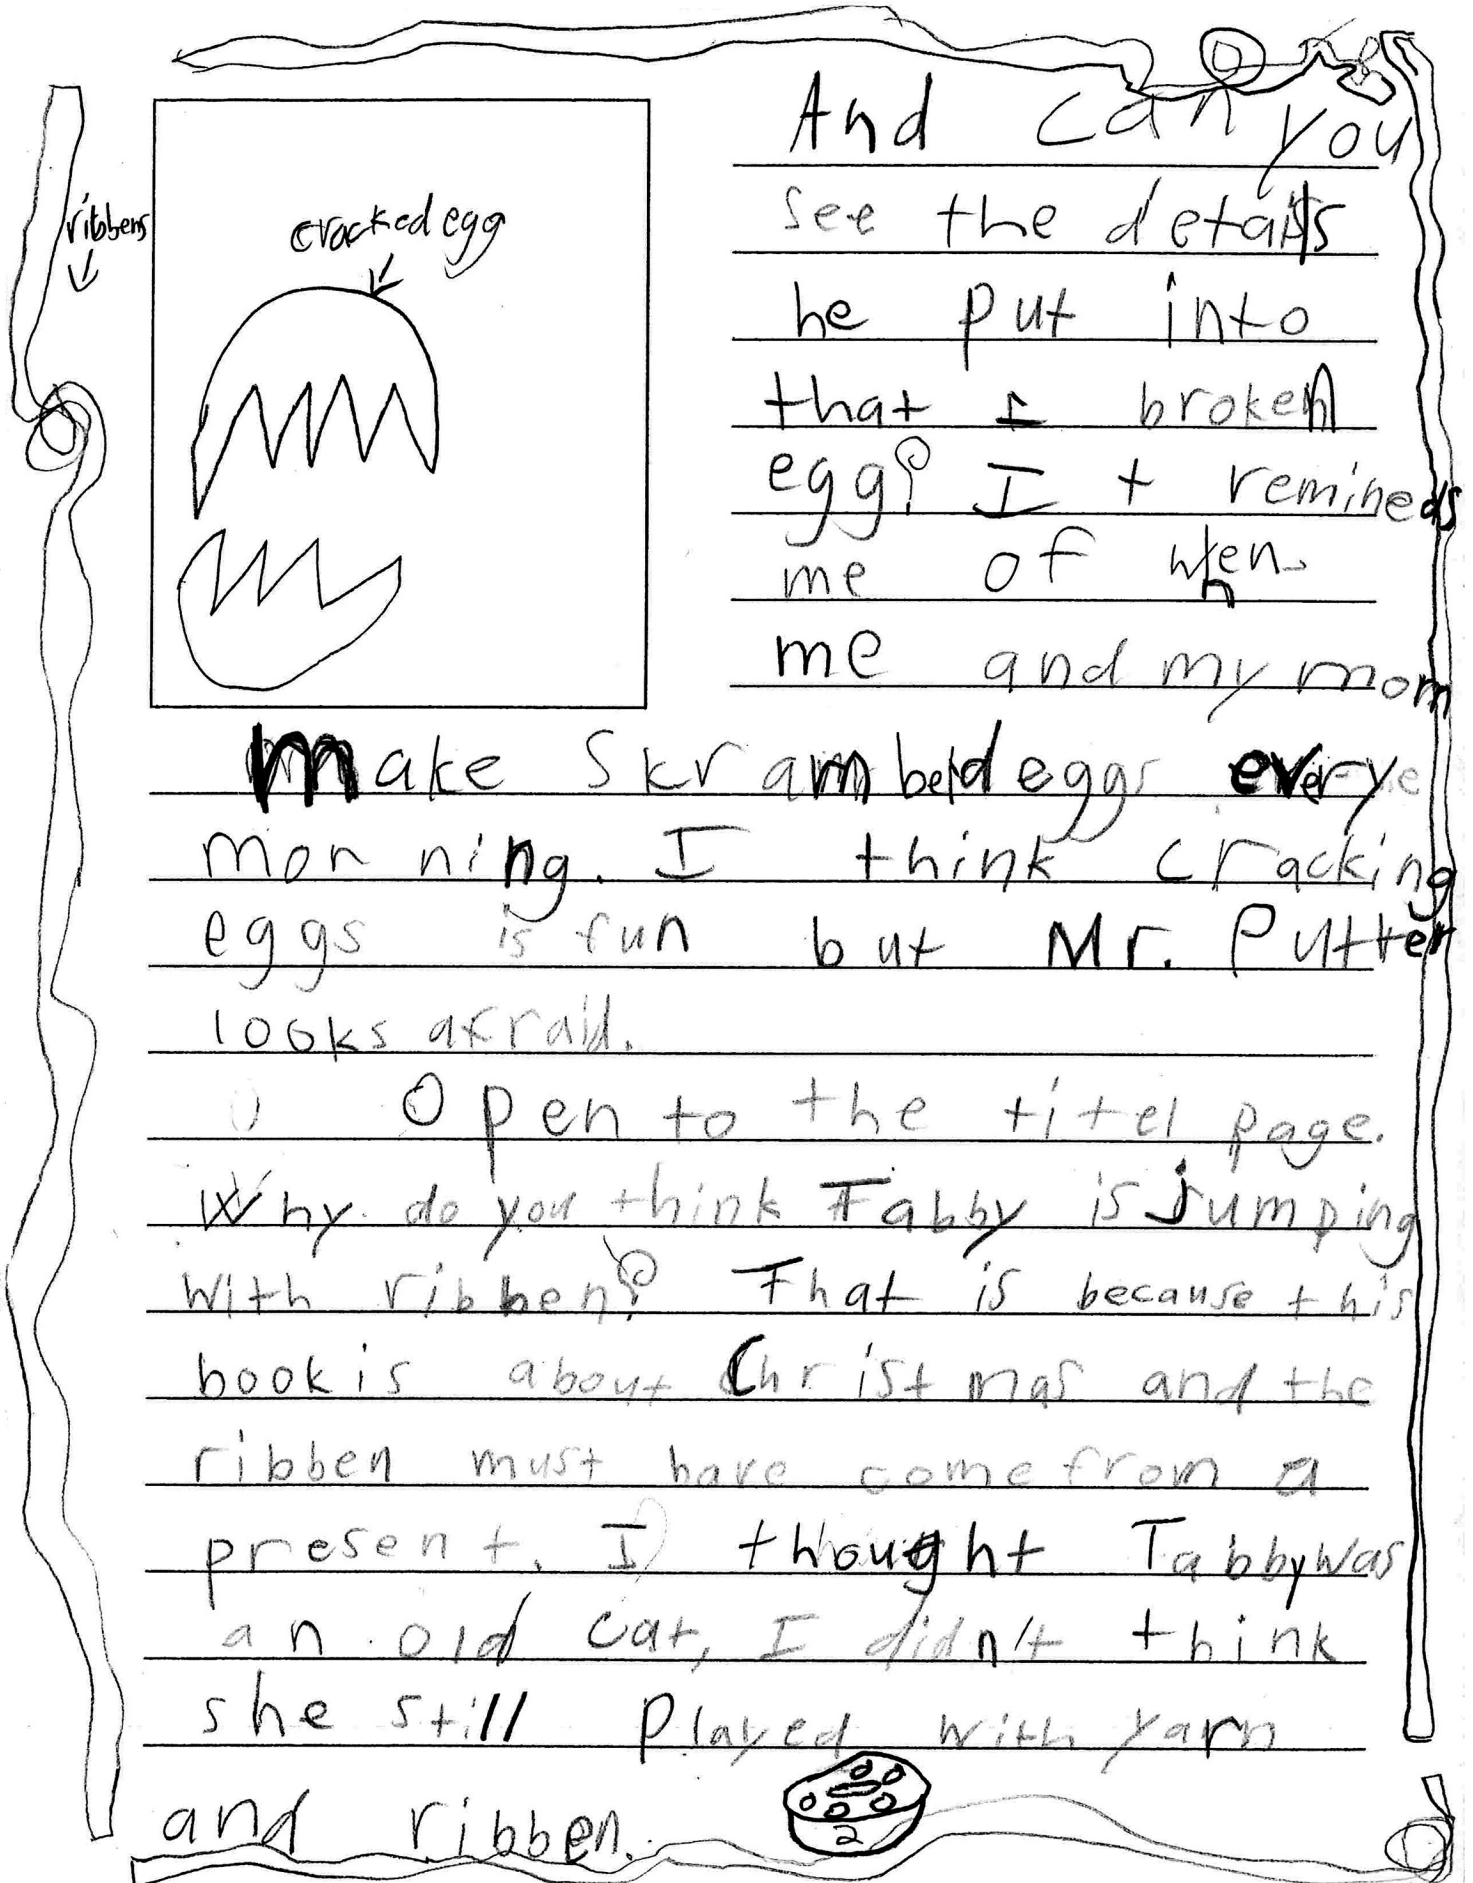 ribbens
cracked egg
And can you
see the details
he put into
that 1 broken
egg? It remineds
me of when
me and my mom
make skrambeld eggs everye
morning. I think cracking
eggs is fun but Mr. Putter
looks afraid.
Open to the titel page.
Why do you think Tabby is jumping
with ribben? That is because this
book is about Christmas and the
ribben must have come from a
present. I thought Tabby was
an old cat, I didn't think
she still played with yarn
and ribben.
2